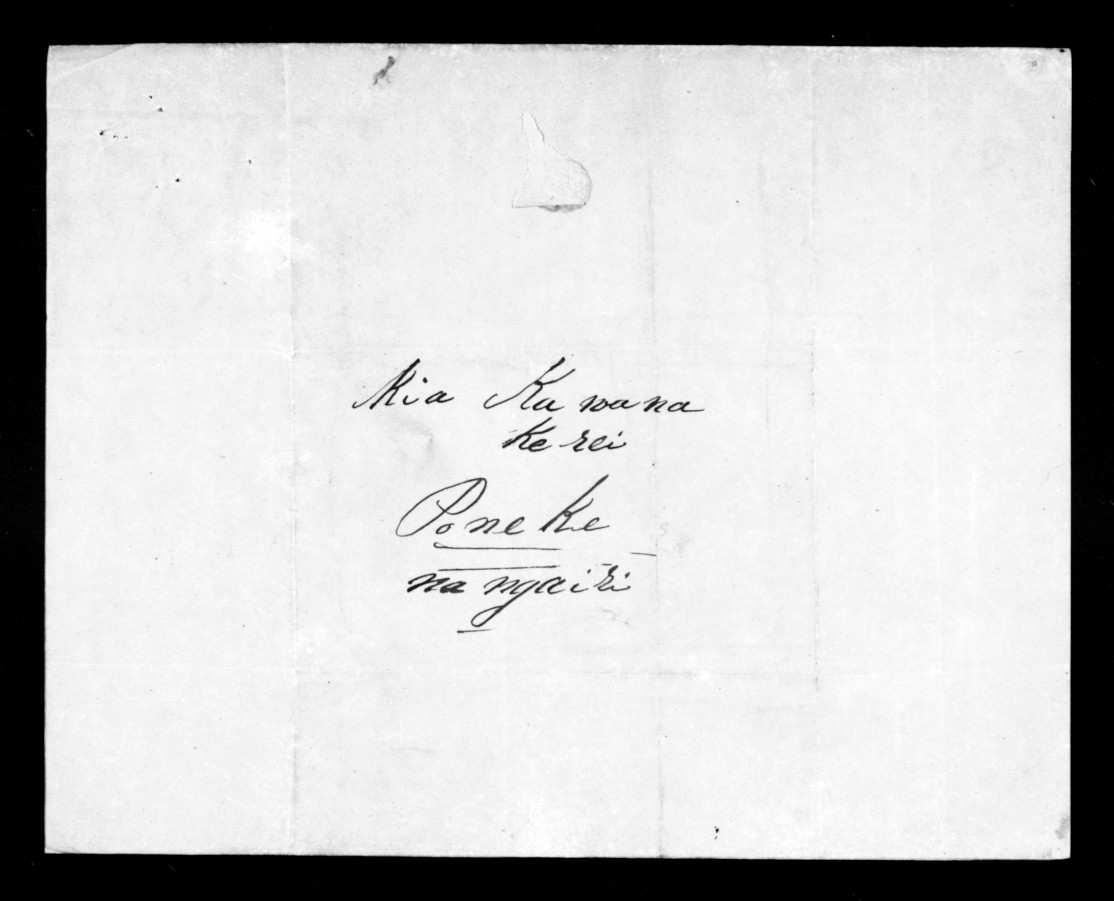 Kia Kawana
Kerei
Poneke
na ngaiti